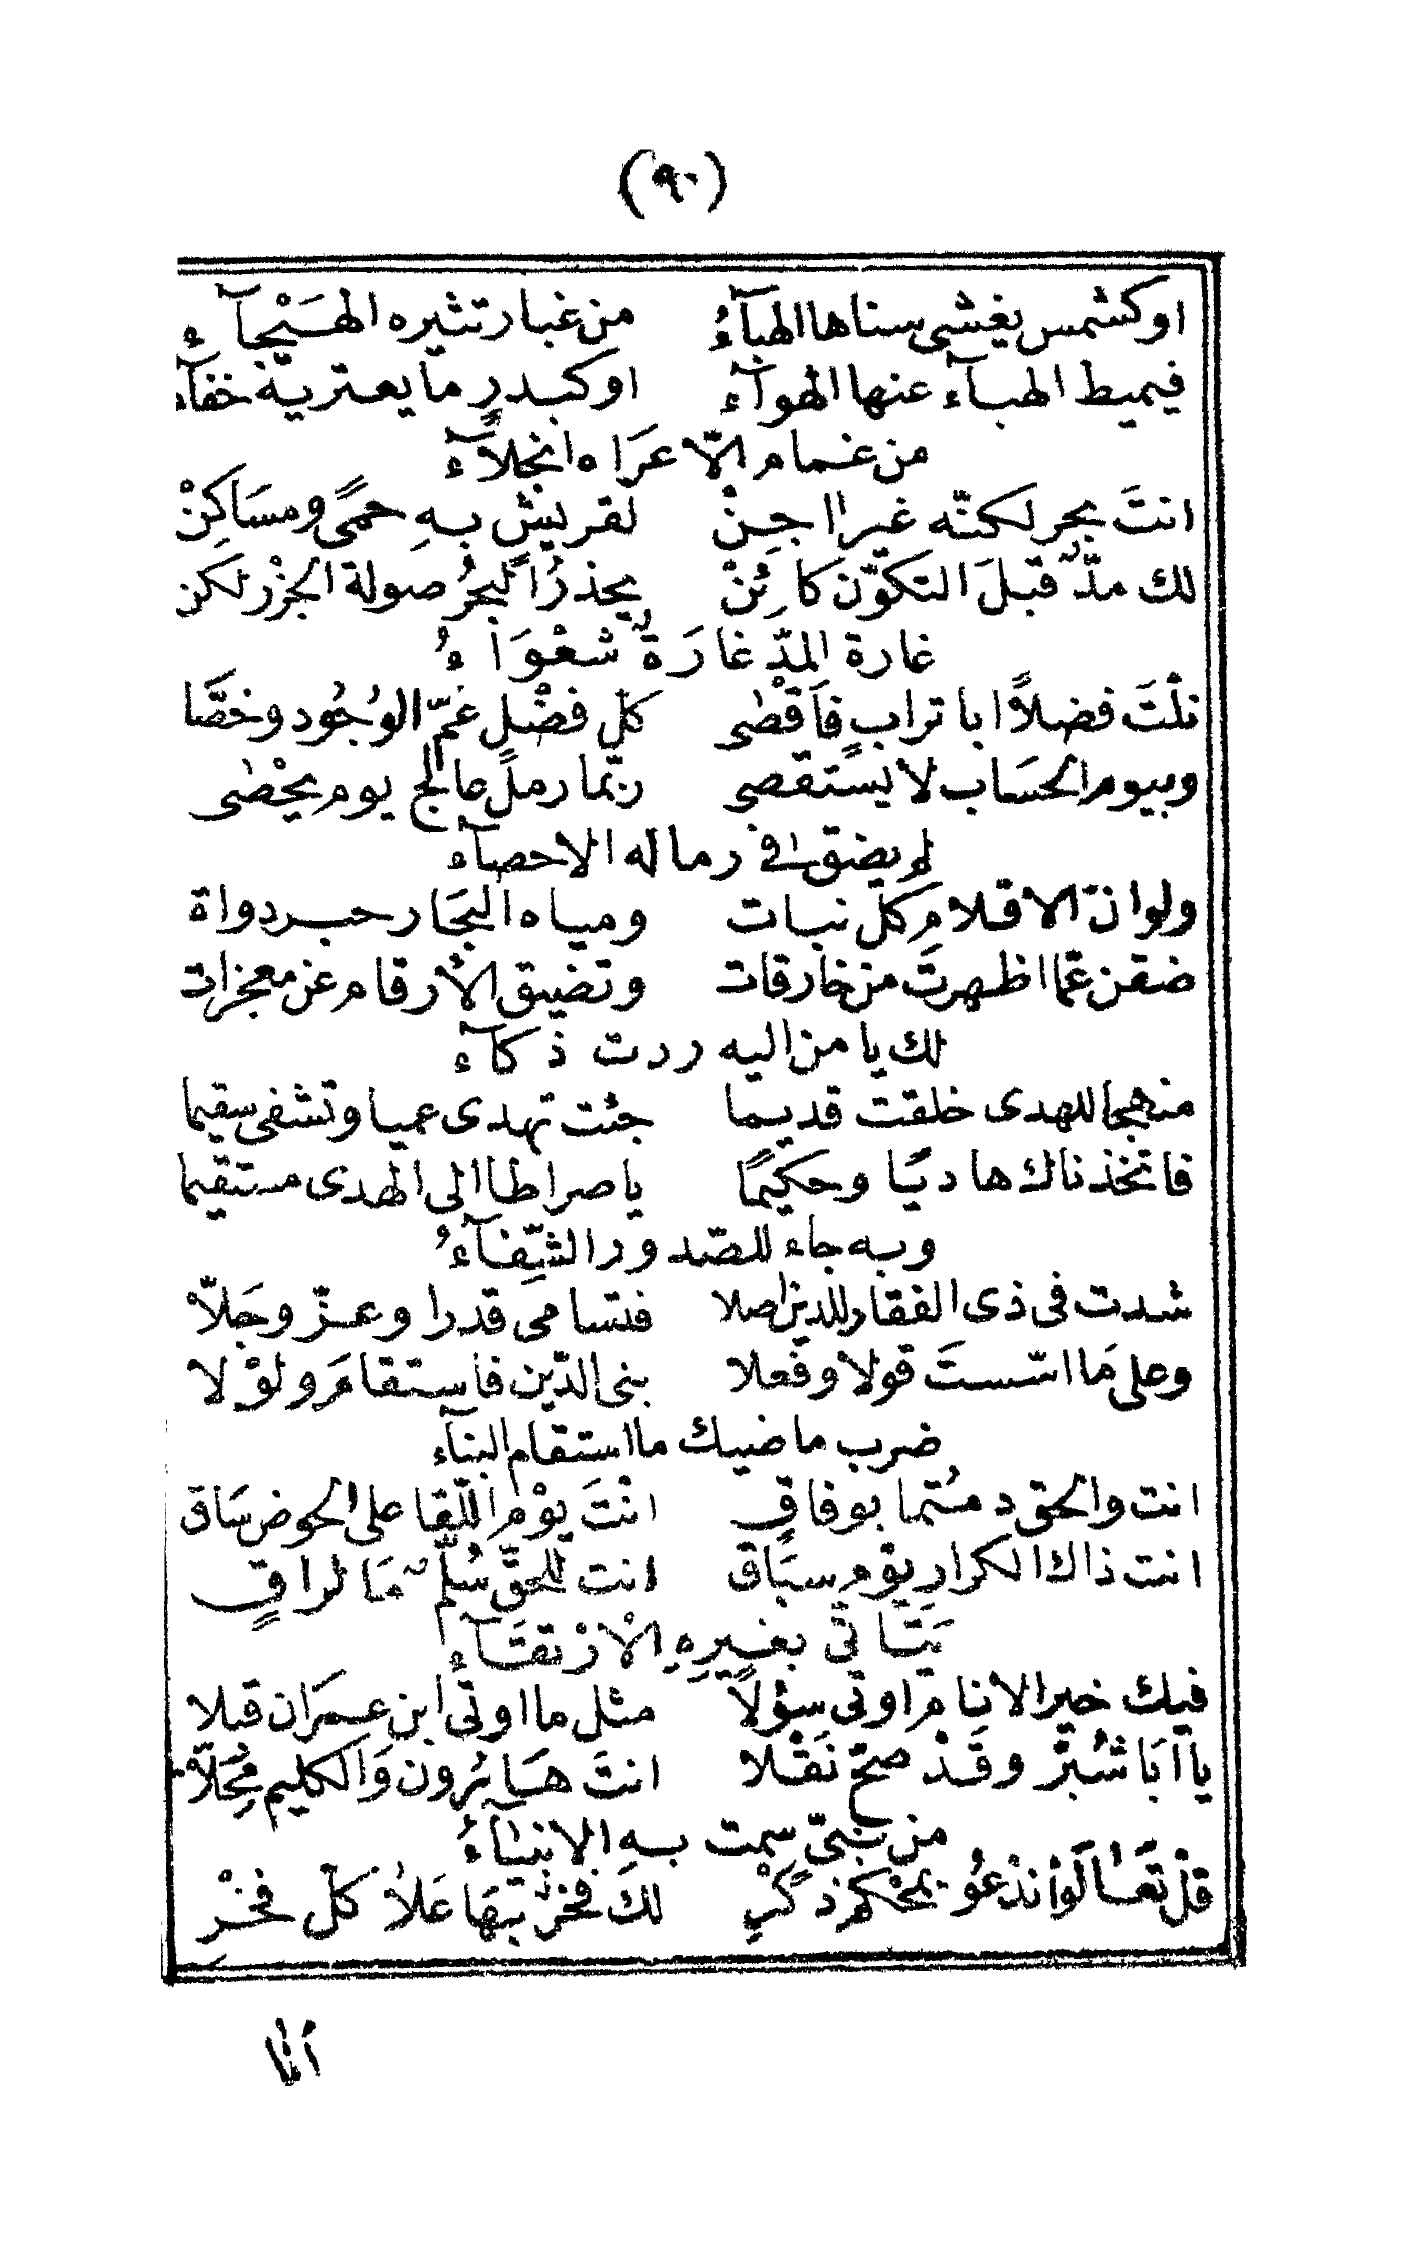 (٩٠)
اوكشمس يغشى سناها الهبآءُ من غبار تثيره الهَيْجآء
فيميط الهبآء عنها الهوآء اوكبدرٍ ما يعتريه خفآء
من غمام الّا عَرَاه انجلآء
انتَ بحر لكنّه غير اجِنْ لقريشٍ بهِ حمًى ومسَاكِنْ
لك مدٌّ قبلَ التكوّن كائِنْ يحذرُ البحرُ صولة الجزْر لكن
غارة المدّ غارَةٌ شعْوَاءُ
نلْتَ فضلاً ابا ترابٍ فاَقْصٰى كلّ فضْلٍ عَمّ الوُجُود وخصَّا
وبيوم الحسَاب لا يستقصى ربّما رملَ عالج يوم يحْصٰى
لم يضق في رماله الاحصآء
ولو انّ الاقلام كلّ نبات ومياه البحَار حبر دواة
ضقن عمّا اظهرتَ من خارقات وتضيق الأرقام عن معجزات
لك يا من اليه ردت ذكآء
منهجا للهدى خلقت قديما جئت تهدى عميا وتشفى سقيما
فاتخذناك هاديًا وحكيمًا يا صراطا الى الهدى مستقيما
وبه جاء للصّدور الشّفآءُ
شدت فى ذى الفقار للدين اصلا فتسامى قدرا وعزّ وجَلاّ
وعلى مَا اسّستَ قولا وفعلا بنى الدّين فاستقامَ ولوْ لا
ضرب ماضيك ما استقام البنآء
انت والحق دمتُما بوفاقٍ انْتَ يوْم اللّقا على الحوض سَاق
انت ذاك الكرار يوْم سبَاق انت للحقّ سُلّمٌ مَا لراقٍ
يَتَأتّى بغيرِهِ الاْرْتقَآء
فيك خير الانام اوتى سؤلاً مثل ما اوتى ابن عمرَان قبلا
يا اَبَا شُبّرْ وقَدْ صحّ نَقْلا انتَ هَارُون وَالكليم مُحَلاّ
من نبىّ سمت بهِ الانبيآءُ
قلْ تعَالَوْا نَدْعُو بمحْكم ذكْرٍ لكَ فخرٌ بهَا عَلاٰ كلّ فخْرِ